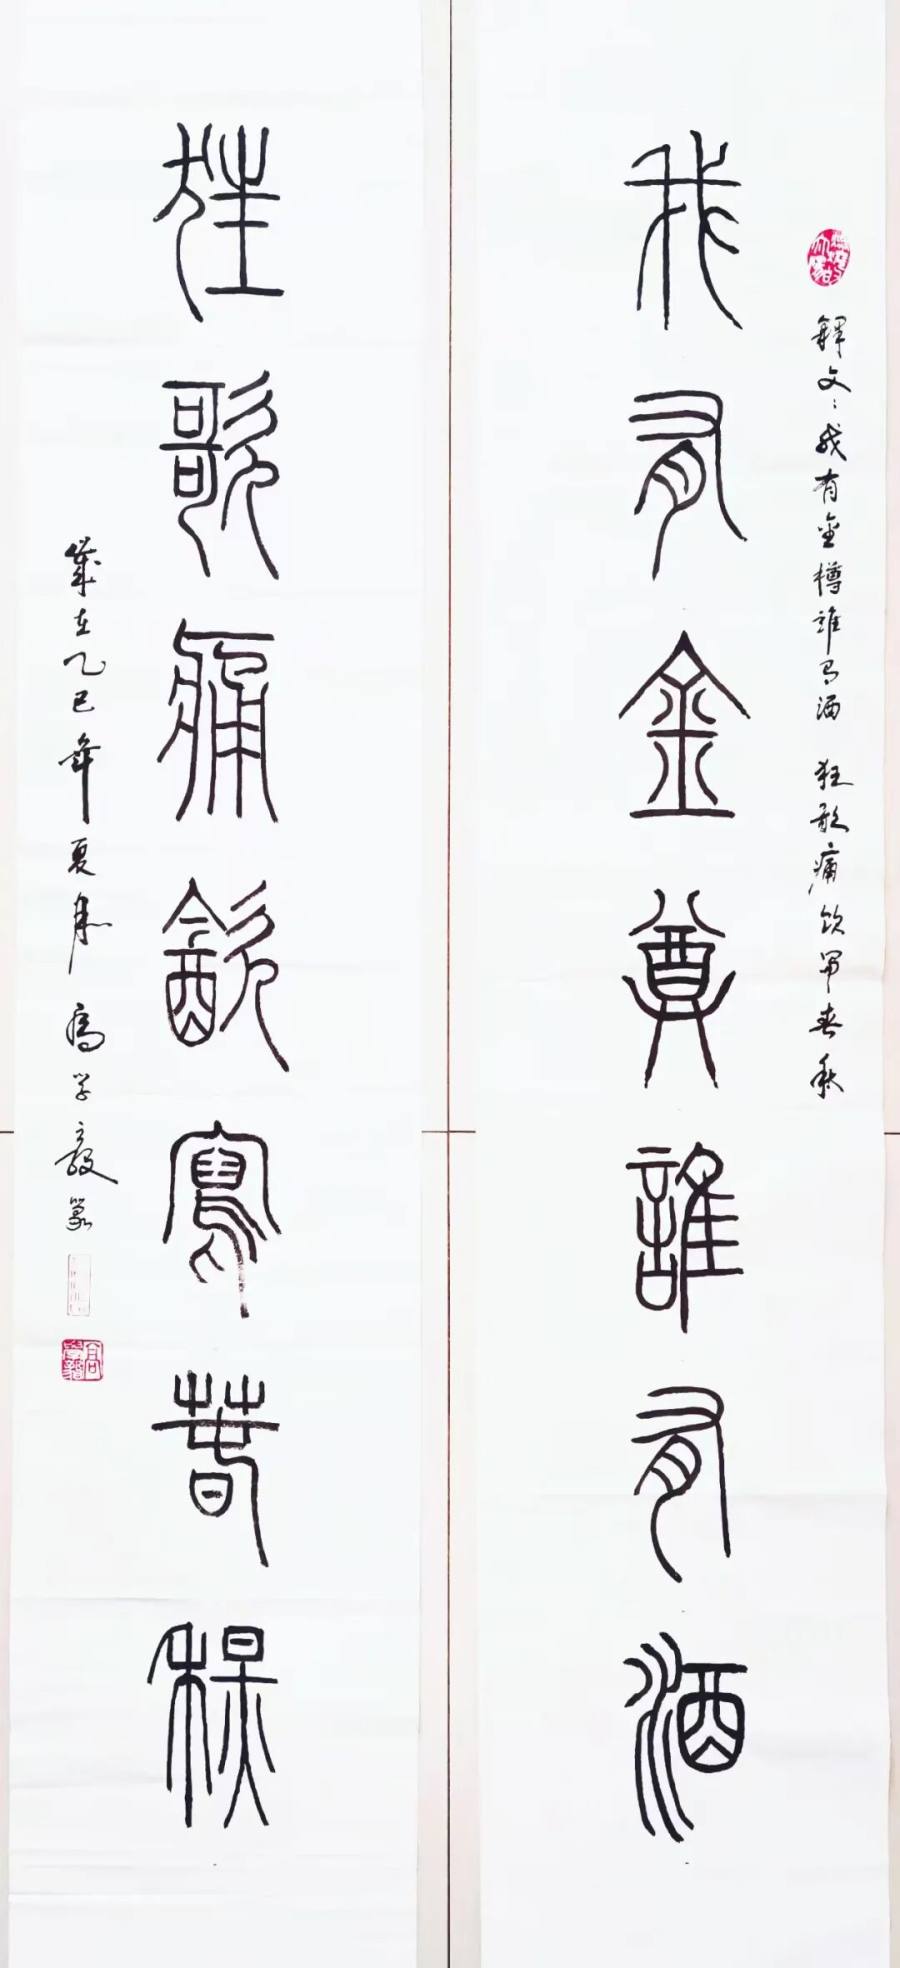 釋文：我有金樽誰有酒 狂歌痛饮写春秋
我有金尊誰有酒
狂歌痛飲寫春秋
歲在乙巳年夏月 高学毅篆